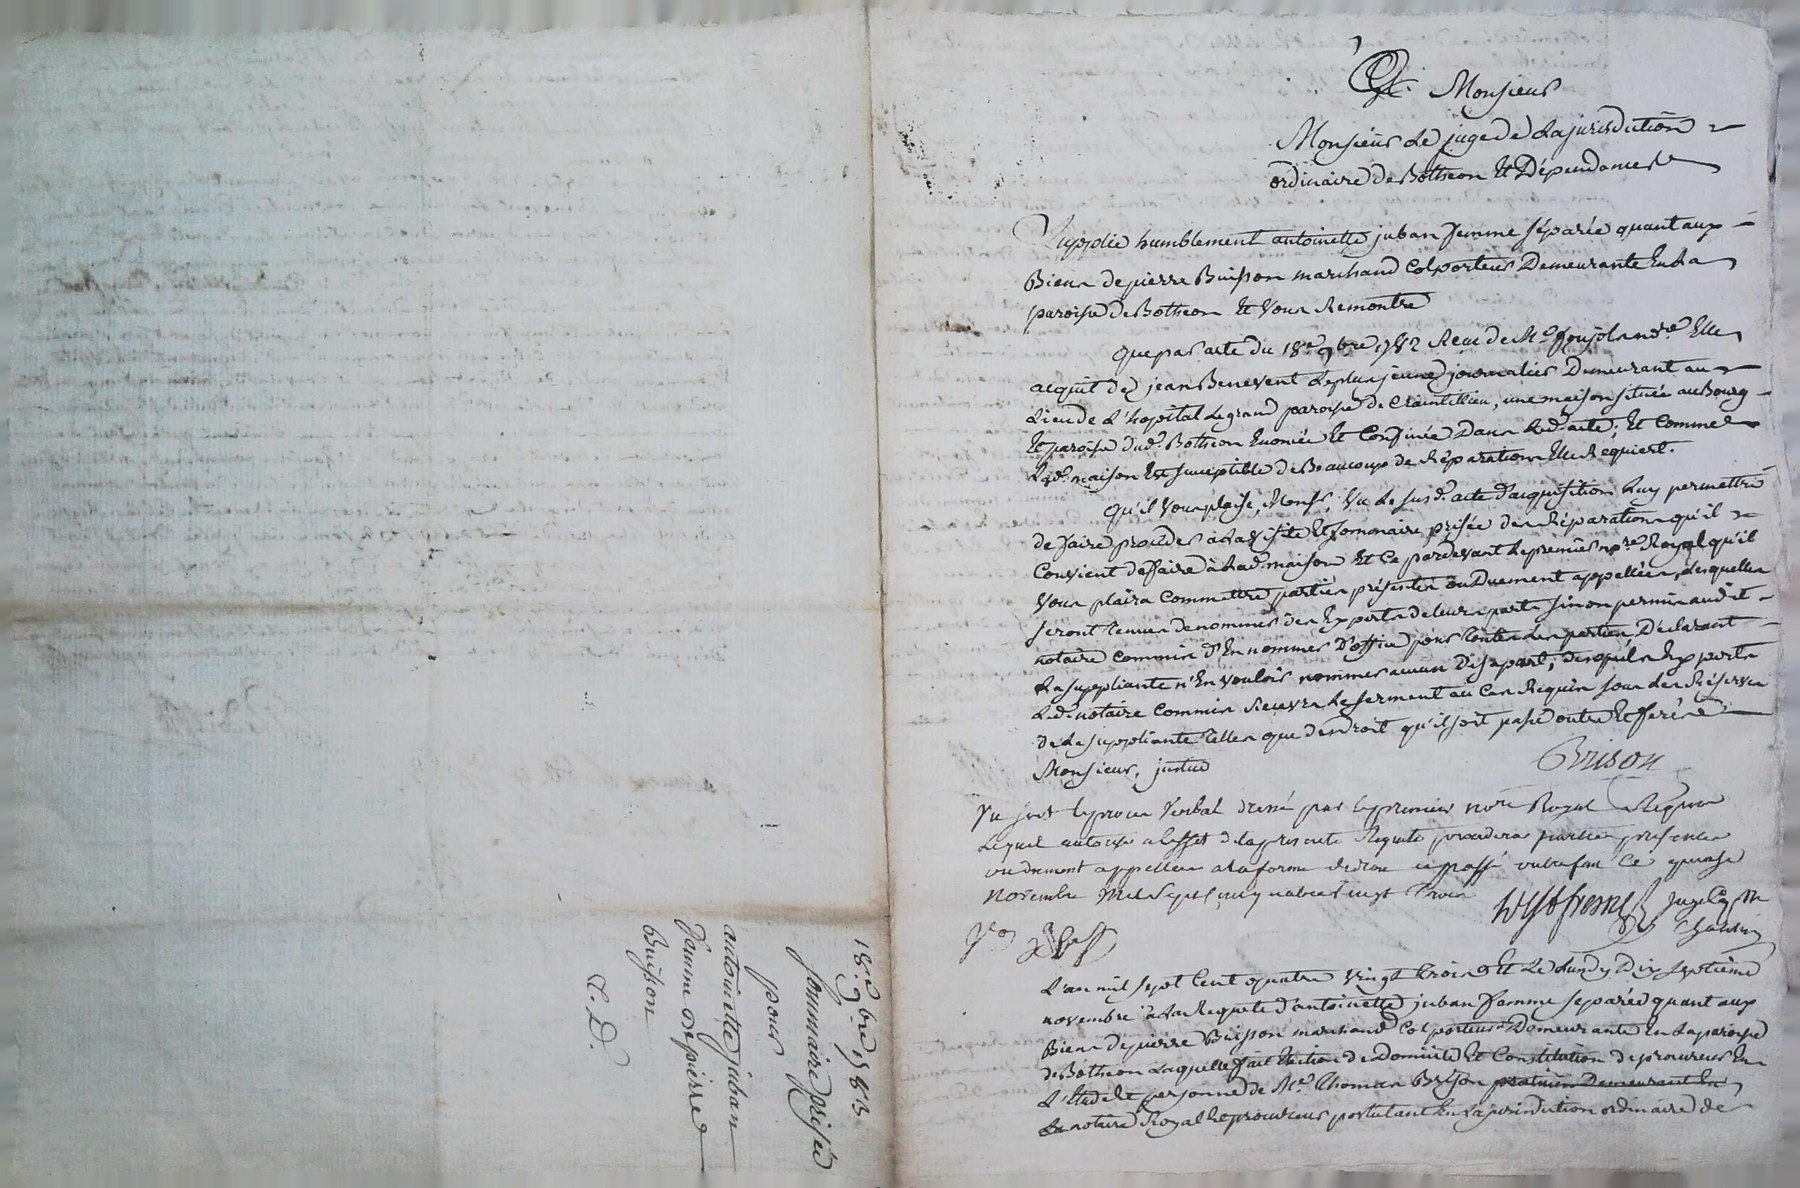 A Monsieur
Monsieur Le juge de La jurisdiction
ordinaire de Botheon Et Dépendances
Supplie humblement antoinette juban femme séparée quant aux
Biens de pierre Buisson marchand Colporteur Demeurante En La
paroisse de Botheon Et Vous Remontre
que par acte du 18e 9bre 1782 Reçu de Me nore Elle
acquit de jean Benevent Le plus jeune journalier Demeurant au
Lieu de L'hopital Le grand paroisse de Craintillieu, une maison située au Bourg
Et paroisse dud. Botheon Enoncée Et Confinée Dans Led. acte; Et Comme
Lad. maison Est susceptible de Beaucoup de Réparations Elle Requiert.
Qu'il Vous plaise, Monsr, Vu Le susd. acte d'acquisition Luy permettre
de faire proceder à La Visite Et sommaire prisée des Réparations qu'il
Convient de faire à Lad. maison Et Ce pardevant Le premier nore Royal qu'il
Vous plaira Commettre parties présentes ou Duement appellées, Lesquelles
seront tenues de nommer des Experts de Leurs parts sinon permis audit
notaire Commis d'En nommer D'office pour toutes Les parties, Déclarant
La suppliante n'En vouloir nommer aucun De sa part, desquels Experts
Led. notaire Commis Recevra Le serment au Cas Requis sous Les Réserves
de La suppliante telles que de droit qu'il soit passé outre Et ferés
Monsieur, justice
Brison
Vu soit le procès Verbal dressé par le premier nore Royal Requis
Lequel autorisé a leffet de la presente Requete procedera parties presentes
ou duement appellées a la forme de droit ce passé outre fait Ce quinze
Novembre Mil Sept Cent quatre vingt trois
juge
L'an mil sept Cent quatre Vingt trois Et Le Lundy Dix septième
novembre à La Requete d'antoinette juban femme separée quant aux
Biens de pierre Buisson marchand Colporteur Demeurante En La paroisse
de Botheon Laquelle fait Election de Domicile Et Constitution de procureur En
L'Etude Et personne de Me Thomas Brison praticien Demeurant En
notaire Royal Et procureur postulant En La jurisdiction ordinaire de
18e 9bre 1783
sommaire prisée
pour
antoinette juban
femme de pierre
Buisson
C. D.